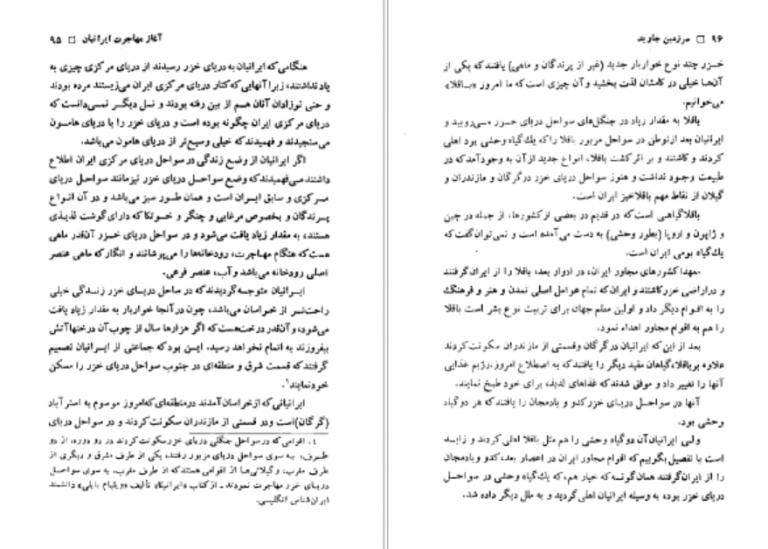 آغاز مهاجرت ایرانیان □ ۹۵
هنگامی که ایرانیان به دریای خزر رسیدند از دریای مرکزی چیزی به
یاد نداشتند، زیرا آنهایی که کنار دریای مرکزی ایران می‌زیستند مرده بودند
و حتی نوزادان آنان هم از بین رفته بودند و نسل دیگر نمی‌دانست که
دریای مرکزی ایران چگونه بوده است و دریای خزر را با دریای هامون
می‌سنجیدند و فهمیدند که خیلی وسیع‌تر از دریای هامون می‌باشد.
اگر ایرانیان از وضع زندگی در سواحل دریای مرکزی ایران اطلاع
داشتند می‌فهمیدند که وضع سواحل دریای خزر نیز مانند سواحل دریای
مرکزی و سابق ایران است و همان طور سبز می‌باشد و در آن انواع
پرندگان و بخصوص مرغابی و چنگر و خوتکا که دارای گوشت لذیذی
هستند، به مقدار زیاد یافت می‌شود و در سواحل دریای خزر آنقدر ماهی
هست که هنگام مهاجرت، رودخانه‌ها را می‌پوشانند و انگار که ماهی عنصر
اصلی رودخانه می‌باشد و آب، عنصر فرعی.
ایرانیان متوجه گردیدند که در ساحل دریای خزر زندگی خیلی
راحت‌تر از خراسان می‌باشد، چون در آنجا خواربار به مقدار زیاد یافت
می‌شود، و آن‌قدر درخت هست که اگر هزارها سال از چوب آن درختها آتش
بیفروزند به اتمام نخواهد رسید. این بود که جماعتی از ایرانیان تصمیم
گرفتند که قسمت شرق و منطقه‌ای در جنوب سواحل دریای خزر را مسکن
خود نمایند¹.
ایرانیانی که از خراسان آمدند در منطقه‌ای که امروز موسوم به استرآباد
(گرگان) است و در قسمتی از مازندران سکونت کردند و در سواحل دریای
۱. اقوامی که در سواحل جنگلی دریای خزر سکونت کردند در دو دوره، از دو
طرف، به سوی سواحل دریای مزبور رفتند، یکی از طرف مشرق و دیگری از
طرف مغرب، و گیلانی‌ها از اقوامی هستند که از طرف مغرب، به سوی سواحل
دریای خزر مهاجرت نمودند ـ از کتاب «ایرانیکا» تألیف «ویلیام بایلی» دانشمند
ایران‌شناس انگلیسی.
۹۶ □ سرزمین جاوید
خزر چند نوع خواربار جدید (غیر از پرندگان و ماهی) یافتند که یکی از
آن‌ها خیلی در کامشان لذت بخشید و آن چیزی است که ما امروز «باقلا»
می‌خوانیم.
باقلا به مقدار زیاد در جنگل‌های سواحل دریای خزر می‌رویید و
ایرانیان بعد از توطن در سواحل مزبور باقلا را که یک گیاه وحشی بود اهلی
کردند و کاشتند و بر اثر کشت باقلا، انواع جدید از آن به وجود آمد که در
طبیعت وجود نداشت و هنوز سواحل دریای خزر در گرگان و مازندران و
گیلان از نقاط مهم باقلاخیز ایران است.
باقلا گیاهی است که در قدیم در بعضی از کشورها، از جمله در چین
و ژاپون و اروپا (بطور وحشی) به دست می‌آمده است و نمی‌توان گفت که
یک گیاه بومی ایران است.
مهذا کشورهای مجاور ایران، در ادوار بعد، باقلا را از ایران گرفتند
و در اراضی خود کاشتند و ایران که تمام عوامل اصلی تمدن و هنر و فرهنگ
را به اقوام دیگر داد و اولین معلم جهان برای تربیت نوع بشر است باقلا
را هم به اقوام مجاور اهداء نمود.
بعد از این که ایرانیان در گرگان و قسمتی از مازندران سکونت کردند
علاوه بر باقلا، گیاهان مفید دیگر را یافتند که به اصطلاح امروز، رژیم غذایی
آنها را تغییر داد و موفق شدند که غذاهای لذیذ، برای خود طبخ نمایند.
آنها در سواحل دریای خزر کدو و بادمجان را یافتند که هر دو گیاه
وحشی بود.
ولی ایرانیان آن دو گیاه وحشی را هم مثل باقلا اهلی کردند و زاید
است با تفصیل بگوییم که اقوام مجاور ایران در اعصار بعد، کدو و بادمجان
را از ایران گرفتند همان‌گونه که خیار هم، که یک گیاه وحشی در سواحل
دریای خزر بود، به وسیله ایرانیان اهلی گردید و به ملل دیگر داده شد.